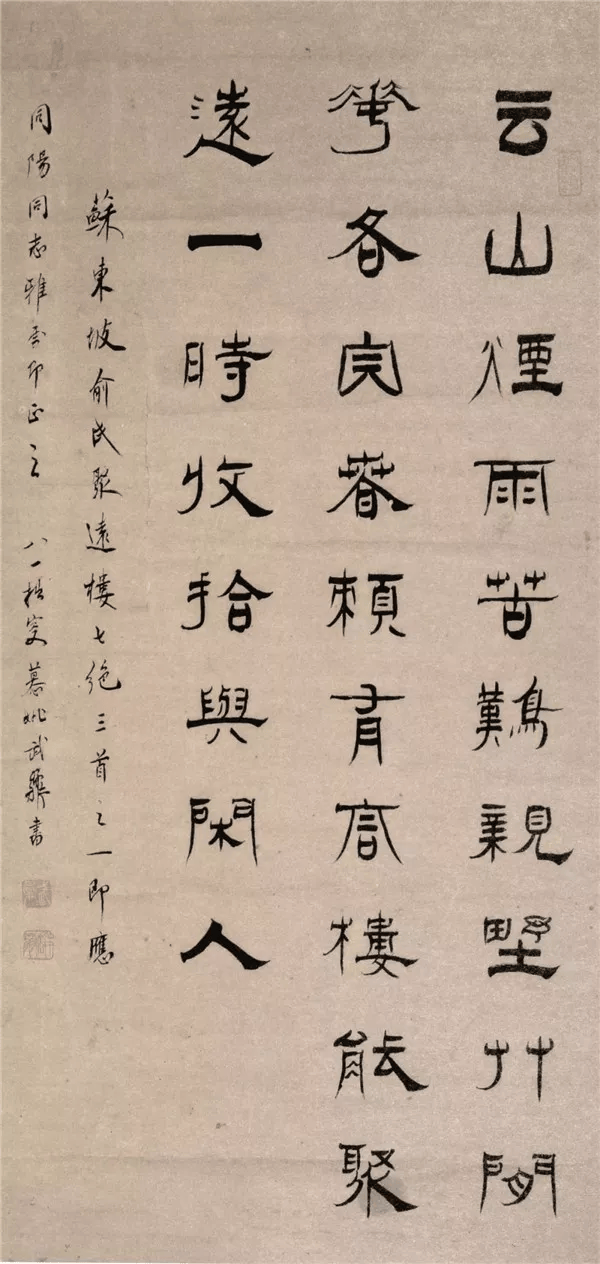 云山煙雨苦難親野艸閒
華各自春賴有高樓能聚
遠一時收拾與閑人
蘇東坡俞氏聚遠樓七絕三首之一即應
同陽同志雅委即正之 八一樵叟慕姚武書